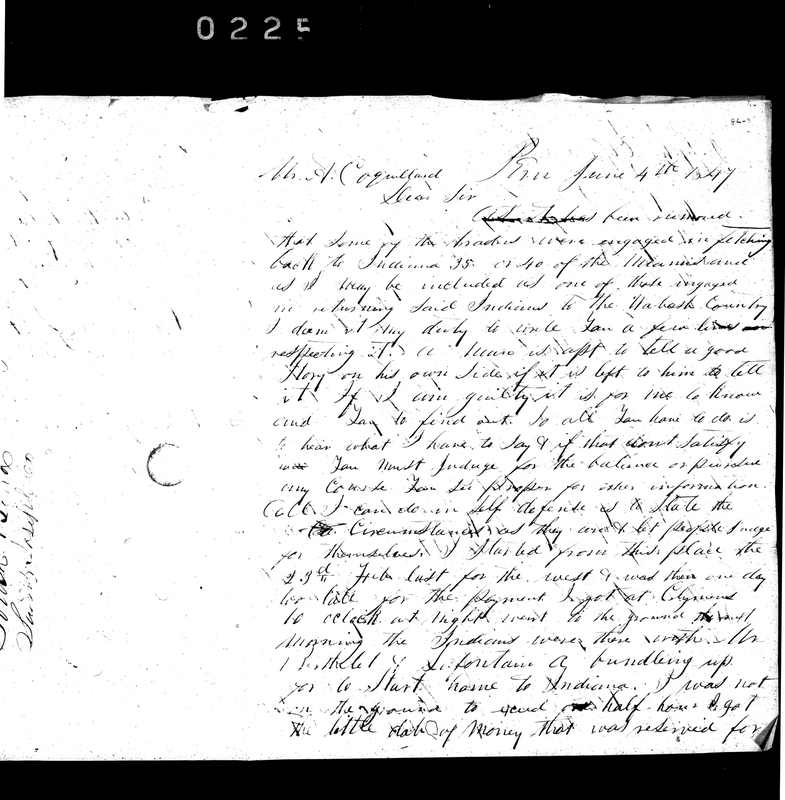 0225
84-
Peru June 4th 1847
Mr. A. Coquillard
Dear Sir
been rumored
that some of the traders were engaged in fetching
back to Indiana 35 or 40 of the Miamis and
as I may be included as one of those engaged
in returning said Indians to the Wabash Country
I deem it my duty to write You a few lines
respecting it. A man is apt to tell a good
Story on his own side if it is left to him to tell
it If I am guilty it is for me to know
and You to find out. So all You have to do is
to hear what I have to Say & if that dont satisfy
You must Judge for the balance or pursue
any Course You See proper for other information.
All I can do in self defense is to State the
Circumstances as they are & let people Judge
for themselves. I started from this place the
23d Feb last for the west & was then one day
too late for the payment I got at
10 oclock at night went to the ground next
Morning the Indians were there with Mr
& Lafontain A bundling up
for to Start home to Indiana. I was not
on the ground to exceed half hour & got
the little dab of money that was reserved for